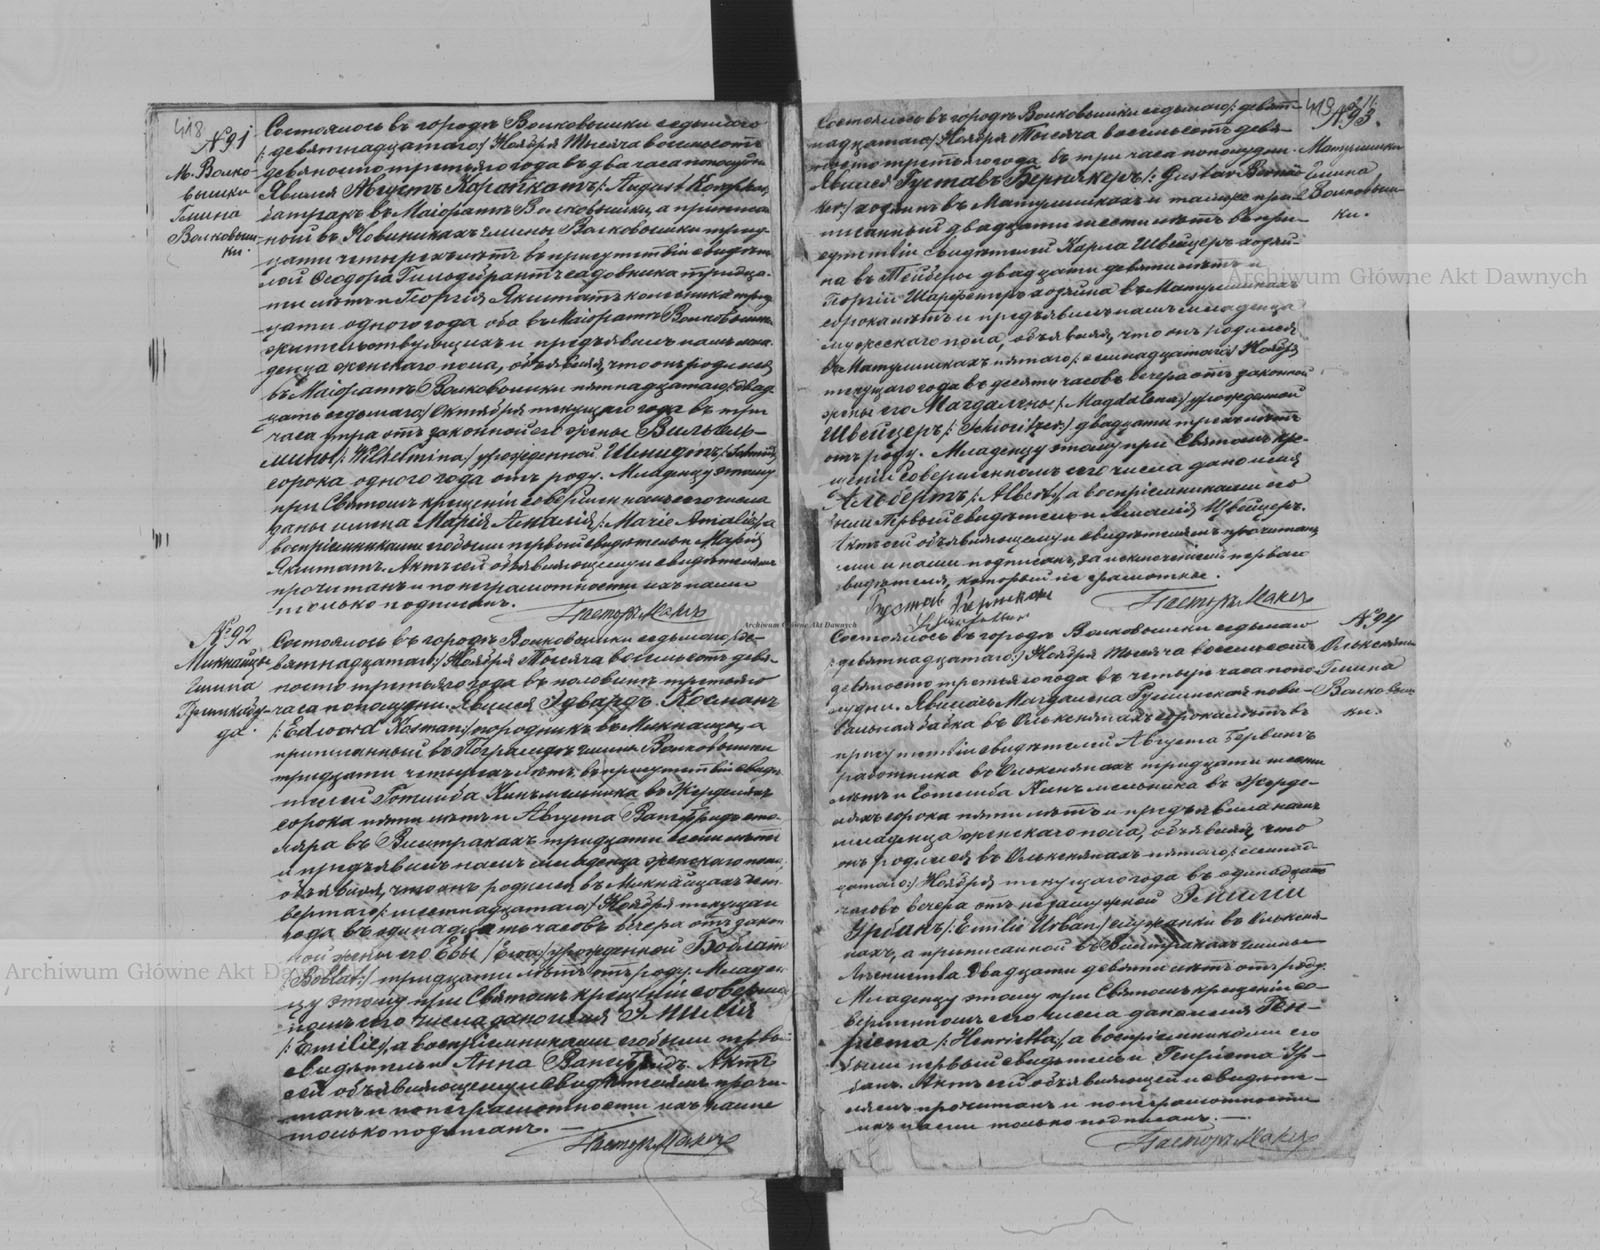 418
№ 91
М. Волко-
вышки
Гмина
Волковыш-
ки.
Состоялось въ городѣ Волковышки седьмаго
/: девятнадцатаго:/ Ноября Тысяча восемьсотъ
девяносто третьяго года въ два часа пополудни
Явился Августъ /: August
батракъ въ Маіоратѣ Волковышки, а приписан-
ный въ Новиникахъ гмины Волковышки трид-
цати четырехъ лѣтъ въ присутствіи свидѣте-
лей Ѳеодора Гильдебрантъ садовника тридца-
ти лѣтъ и Георгія Якштатъ конюшика трид-
цати одного года оба въ Маіоратѣ Волковышки
жительствующихъ и предъявилъ намъ мла-
денца женскаго пола, объявляя, что онъ родился
въ Маіоратѣ Волковышки пятнадцатаго /: двад-
цать седьмаго:/ Октября текущаго года въ три
часа утра отъ законной его жены Вильгель-
мины /: Wilhelmina:/ урожденной Шмидтъ /: Schmidt
сорока одного года отъ роду. Младенцу этому
при Святомъ крещеніи совершенномъ сего числа
даны имена Марія Амалія /: Marie Amalie:/ а
воспріемниками его были первый свидѣтель и Марія
Якштатъ. Актъ сей объявляющему и свидѣтелямъ
прочитанъ и по неграмотности ихъ нами
только подписанъ.
Пасторъ Макъ
№ 92
Микнайцы
Гмина
Состоялось въ городѣ Волковышки седьмаго /: де-
вятнадцатаго:/ Ноября Тысяча восемьсотъ девя-
носто третьяго года въ половинѣ третьяго
часа пополудни. Явился Эдвардъ Косманъ
/: Edward Kosman:/ въ Микнайцы, а
приписанный въ гмины Волковышки
тридцати четырехъ лѣтъ, въ присутствіи свидѣ-
телей Готлиба Кинъ мельника въ
сорока пяти лѣтъ и Августа Вангфридъ сто-
ляра въ Виштракахъ тридцати осьми лѣтъ
и предъявилъ намъ младенца женскаго пола,
объявляя, что онъ родился въ Микнайцахъ чет-
вертаго /: шестнадцатаго:/ Ноября текущаго
года въ одинадцать часовъ вечера отъ закон-
ной жены его Евы /: Ewa:/ урожденной Боблатъ
/: Boblat:/ тридцати лѣтъ отъ роду. Младен-
цу этому при Святомъ крещеніи совершен-
номъ сего числа дано имя Эмилія
/: Emilie:/, а воспріемниками его были первый
свидѣтель и Анна Вангфридъ. Актъ
сей объявляющему и свидѣтелямъ прочи-
танъ и по неграмотности ихъ нами
только подписанъ. —
Пасторъ Макъ
419
№ 93.
Матулишки
Гмина
Волковыш-
ки.
Состоялось въ городѣ Волковышки седьмаго /: девят-
надцатаго:/ Ноября Тысяча восемьсотъ девя-
носто третьяго года въ три часа пополудни
Явился Густавъ Бернекеръ /: Gustav Berne-
ker:/ хозяинъ въ Матулишкахъ и также при-
писанный двадцати шести лѣтъ въ при-
сутствіи свидѣтелей Карла Швейцеръ хозяи-
на въ Тейберы двадцати девяти лѣтъ и
Георгія Шарфетеръ хозяина въ Матулишкахъ
сорока лѣтъ и предъявилъ намъ младенца
мужескаго пола, объявляя, что онъ родился
въ Матулишкахъ пятаго /: семнадцатаго:/ Ноября
текущаго года въ десять часовъ вечера отъ законной
жены его Магдалены /: Magdalena:/ урожденной
Швейцеръ /: Schweitzer:/ двадцати трехъ лѣтъ
отъ роду. Младенцу этому при Святомъ кре-
щеніи совершенномъ сего числа дано имя
Альбертъ /: Albert:/ а воспріемниками его
были первый свидѣтель и Амалія Швейцеръ.
Актъ сей объявляющему и свидѣтелямъ прочитанъ
ими и нами подписанъ, за исключеніемъ перваго
свидѣтеля, который не грамотные.
Густав
Пасторъ Макъ
№ 94
Гмина
Волковыш-
ки.
Состоялось въ городѣ Волковышки седьмаго
/: девятнадцатаго:/ Ноября Тысяча восемьсотъ
девяносто третьяго года въ четыре часа попо-
лудни. Явилась Магдалена пови-
вальная бабка въ сорока лѣтъ въ
присутствіи свидѣтелей Августа Гервинъ
работника въ тридцати шести
лѣтъ и Готлиба Кинъ мельника въ
сорока пяти лѣтъ и предъявила намъ
младенца женскаго пола, объявляя, что
онъ родился въ пятаго /: семнад-
цатаго:/ Ноября текущаго года въ одинадцать
часовъ вечера отъ незамужной Эмиліи
Урбанъ /: Emilie Urban:/ служанки въ
а приписанной въ Виштракахъ гмины
двадцати девяти лѣтъ отъ роду.
Младенцу этому при Святомъ крещеніи со-
вершенномъ сего числа дано имя Ген-
ріета /: Henrietta:/ а воспріемниками его
были первый свидѣтель и Генріета Ур-
банъ. Актъ сей объявляющей и свидѣте-
лямъ прочитанъ и по неграмотности
ихъ нами только подписанъ. —
Пасторъ Макъ
Archiwum Główne Akt Dawnych
Archiwum Główne Akt Dawnych
Archiwum Główne Akt Dawnych